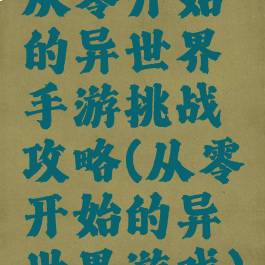 从零开始
的异世界
手游挑战
攻略(从零
开始的异
世界游戏)